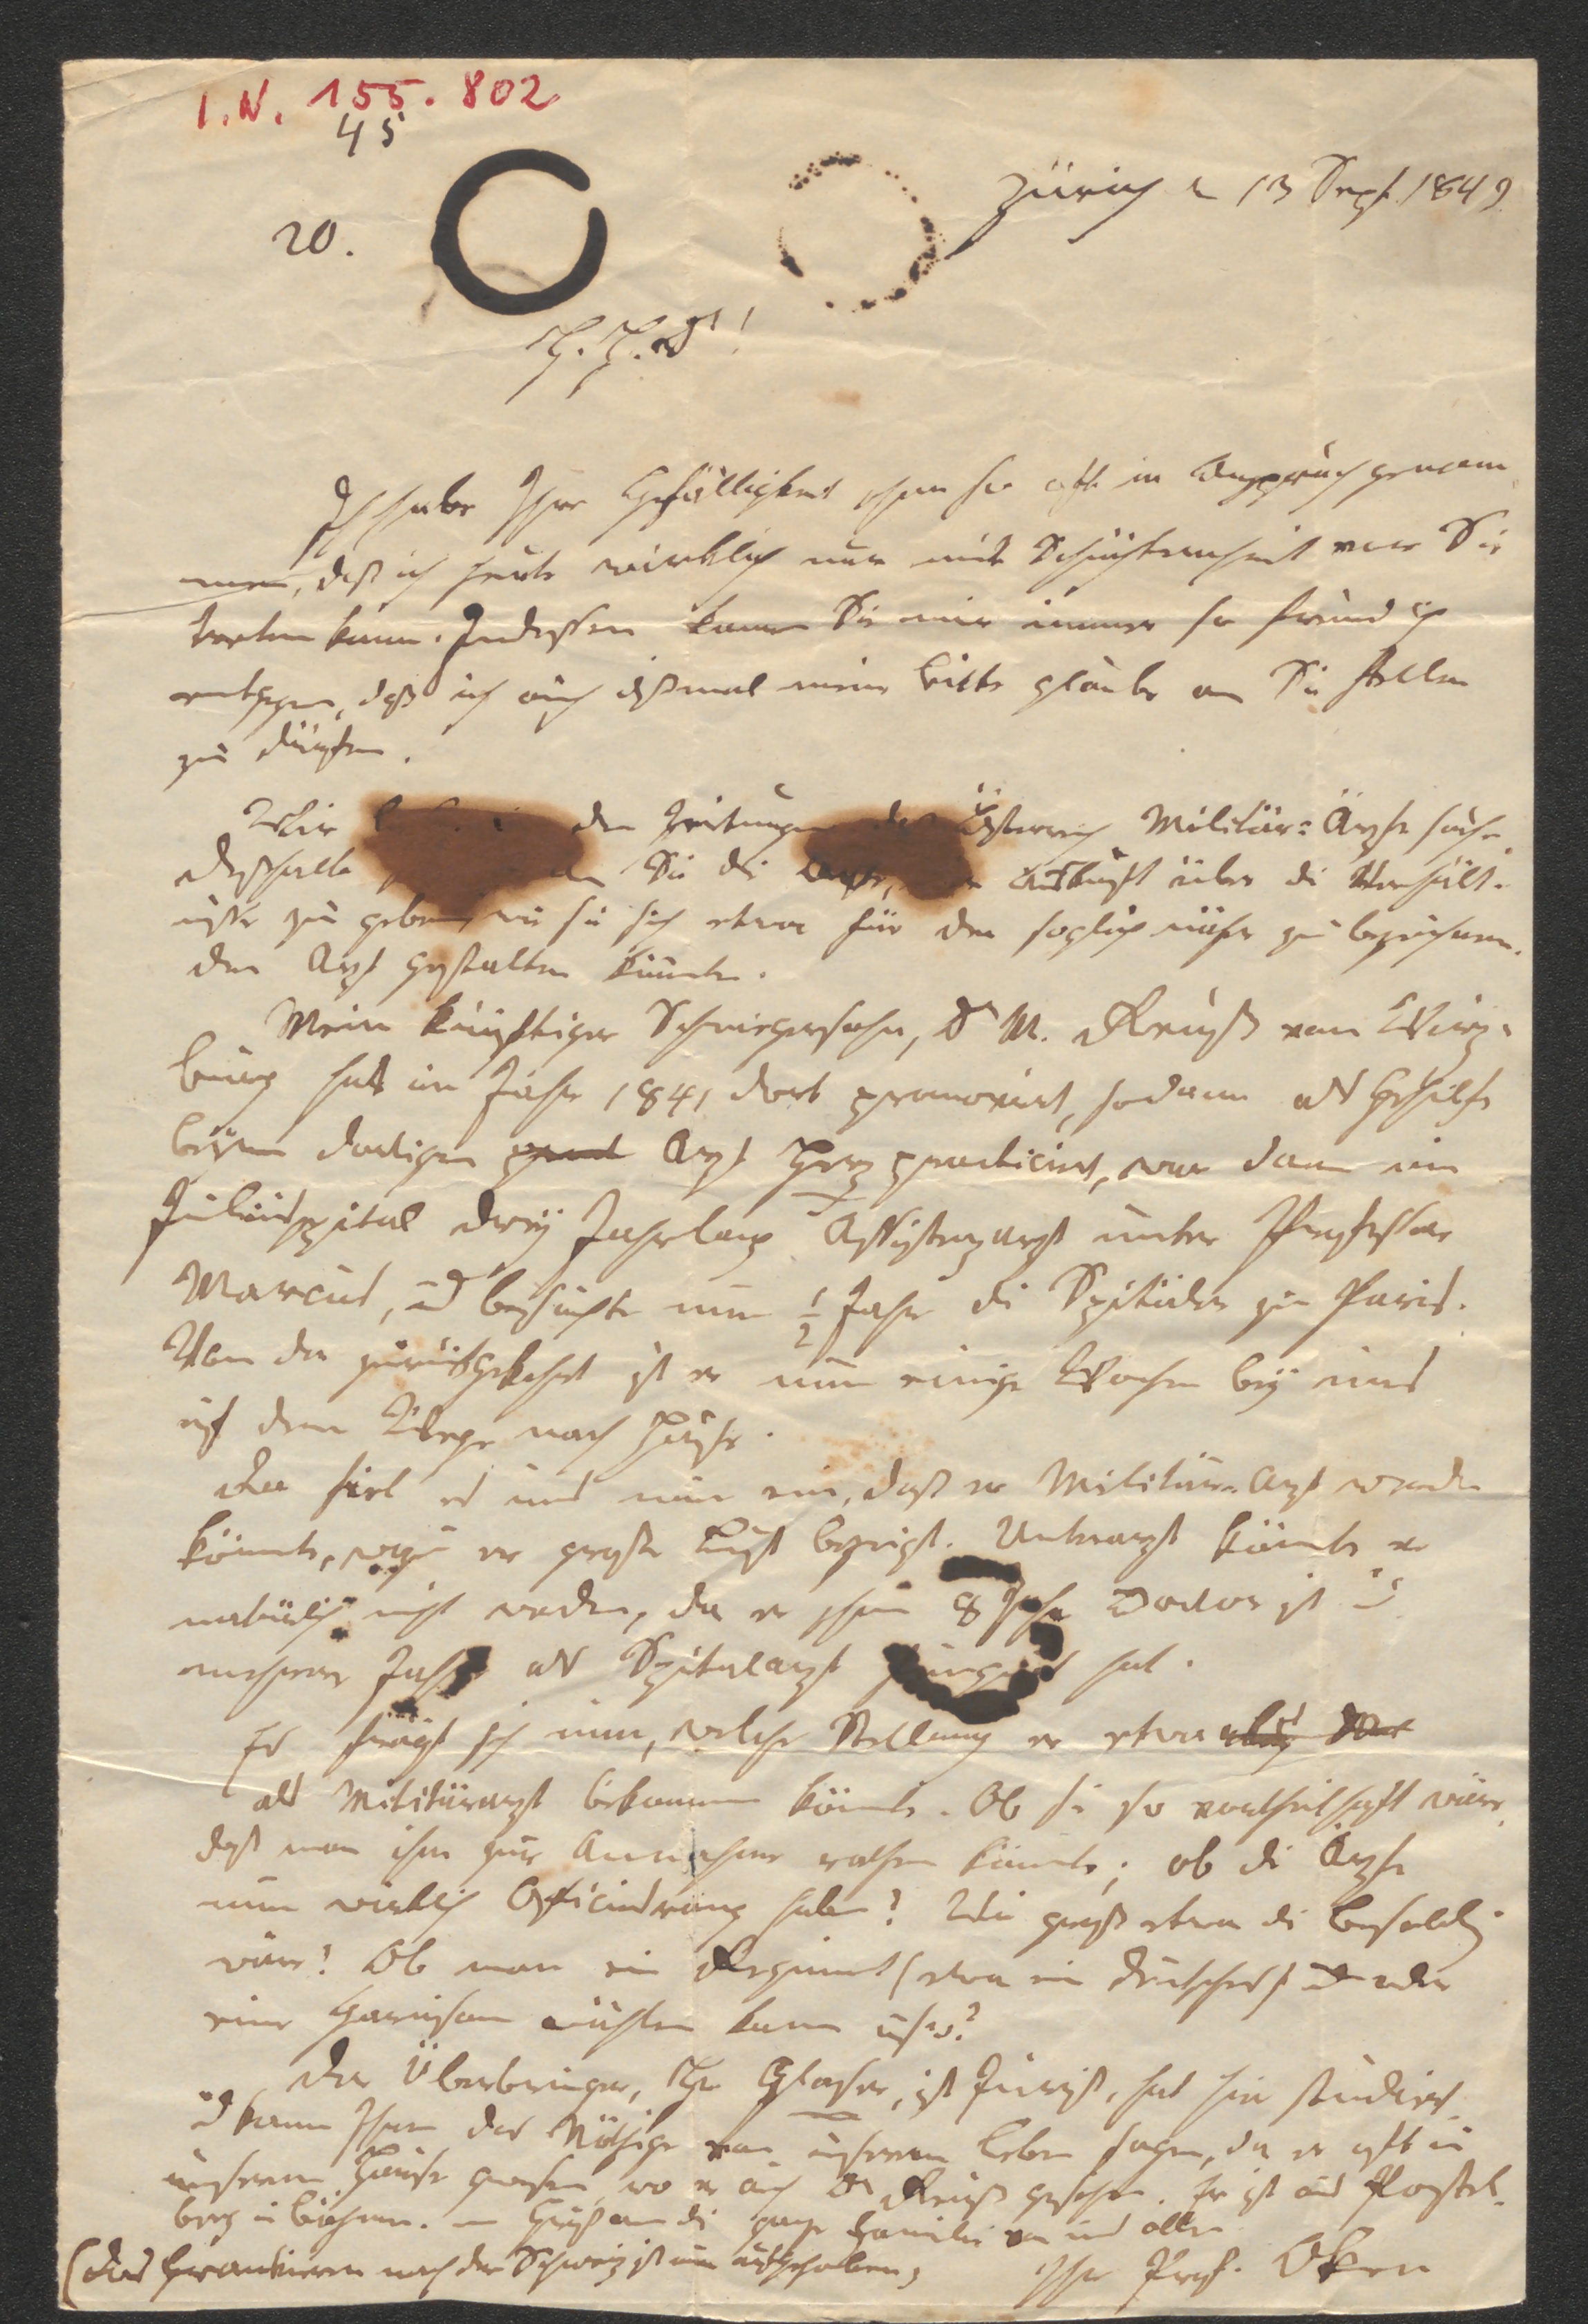 I.N. 155.802
45
20.
Zürich d 13 Sept. 1849.
Ich habe Ihre Gefälligkeit schon so oft in Anspruch genom
men, daß ich heute wirklich nur mit Schüchternheit vor Sie
treten kann. Indessen kamen Sie mir immer so freundlich
entgegen, daß ich auch dißmal meine Bitte glaube an Sie stellen
zu dürfen.
Wir den Zeitungen daß Österreich Militär-Ärzte suche
deßhalb Sie die Auskunft über die Verhält-
nisse zu geben, wie sie sich etwa für den sogleich näher zu bezeichnen
den Arzt gestalten könnten.
Mein künftiger Schwiegersohn, Dr M. Reuß von Würz-
burg hat im Jahr 1841 dort promoviert, sodann als Gehilfe
beym dortigen Arzt Herz practiciert, war dann im
Juliusspital drey Jahrlang Assistenzarzt unter Professor
Marcus, und besuchte nun ½ Jahr die Spitäler zu Paris.
Von da zurückgekehrt ist er nun einige Wochen bey uns
auf dem Wege nach Hause.
Da fiel es uns nun ein, daß er Militär-Arzt werden
könnte, wozu er große Lust bezeigt. Unterarzt könnte er
natürlich nicht werden, da er schon 8 Jahr Doctor ist u
mehrere Jahre als Spitalarzt fungiert hat.
Es frägt sich nun, welche Stellung er etwa
als Militärarzt bekommen könnte. Ob sie so vortheilhaft wäre,
daß man ihm zur Annahme rathen könnte; ob die Ärzte
nun wirklich Officiersrang haben? Wie groß etwa die Besoldg
wäre? Ob man ein Regiment (etwa ein deutsches) oder
eine Garnison wählen kann usw?
Der Überbringer, Hr Glaser, ist Jurist, hat hier studiert
und kann Ihnen das Nöthige von unserem Leben sagen, da er oft in
unserem Hause gewesen, wo er auch Dr Reuß gesehen. Er ist aus Postel-
berg in Böhmen. Gruß an die ganze Familie von uns allen
(Das Frankieren nach der Schweiz ist nun aufgehoben)
Ihr Prof. Oken